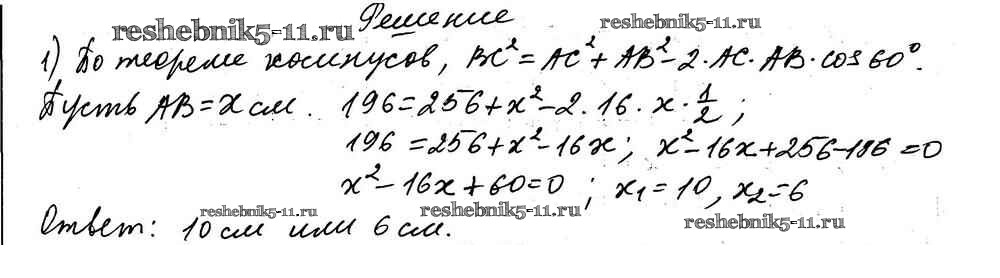 Решение
reshebnik5-11.ru
reshebnik5-11.ru
1) По теореме косинусов, BC² = AC² + AB² - 2·AC·AB·cos 60°.
Пусть AB = x см. 196 = 256 + x² - 2·16·x·1/2;
196 = 256 + x² - 16x; x² - 16x + 256 - 196 = 0
x² - 16x + 60 = 0; x₁ = 10, x₂ = 6
reshebnik5-11.ru
reshebnik5-11.ru
reshebnik5-11.ru
Ответ: 10 см или 6 см.